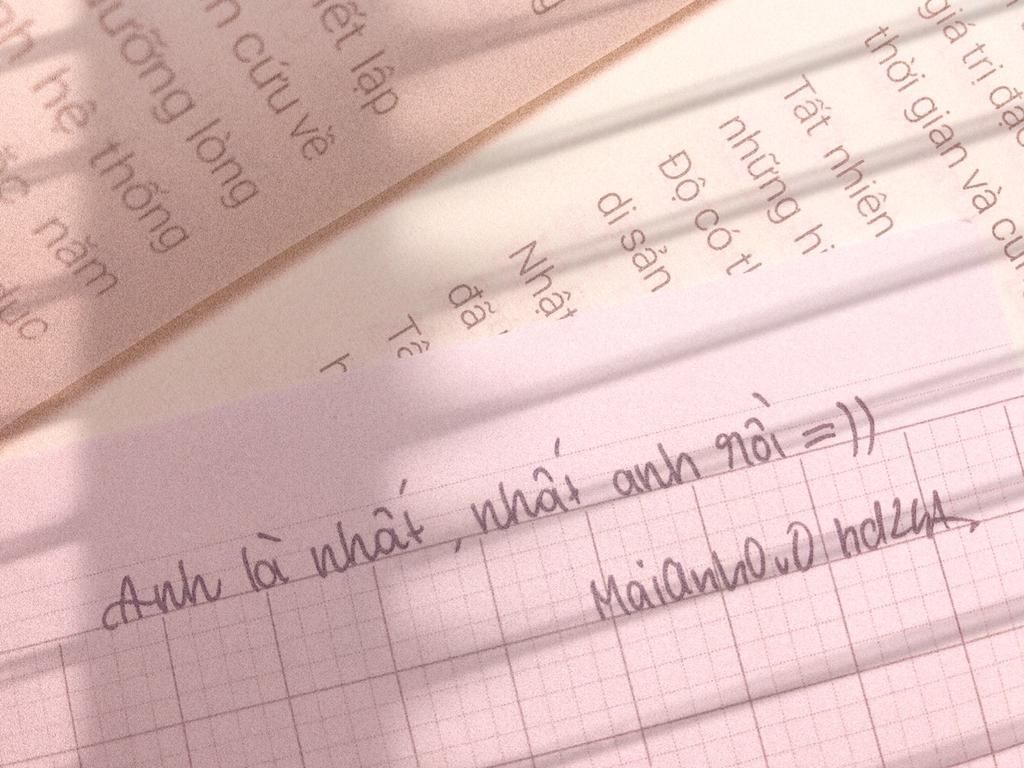 ết lập
n cứu về
ưỡng lòng
nh hệ thống
ốc năm
dục
giá trị đạo
thời gian và cu
Tất nhiên
những hi
Độ có t
di sản
Nhật
đã
Anh là nhất, nhất anh rồi =))
MaiAnh0v0